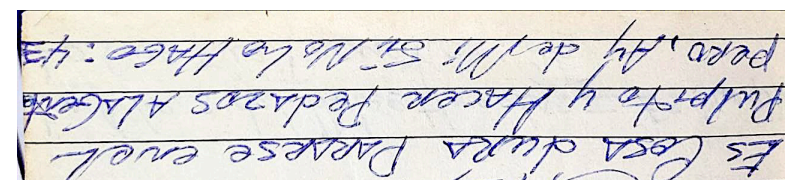 Es Cosa dura Pararse en el
Pulpito y Hacer Pedazos A La Gente
pero, Ay de Mi Si No Lo Hago: